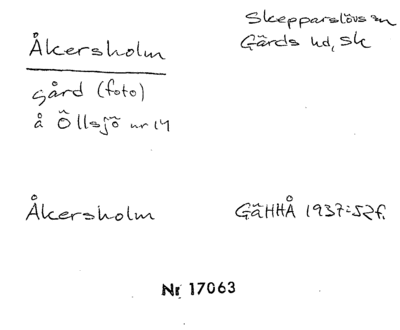 Åkersholm
Skepparslövs sn
Gärds hd, Sk
gård (foto)
å Öllsjö nr 14
Åkersholm
GäHHÅ 1937:52f.
Nr 17063